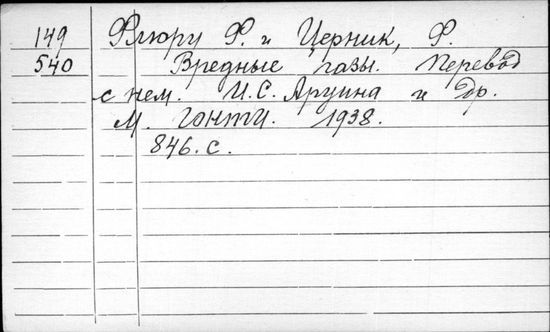 149 Флюру Ф. и Церник, Ф.
540 Вредные газы. Перевод
с нем. И.С. Аруина и др.
М. ГОНТИ. 1938.
846.с.